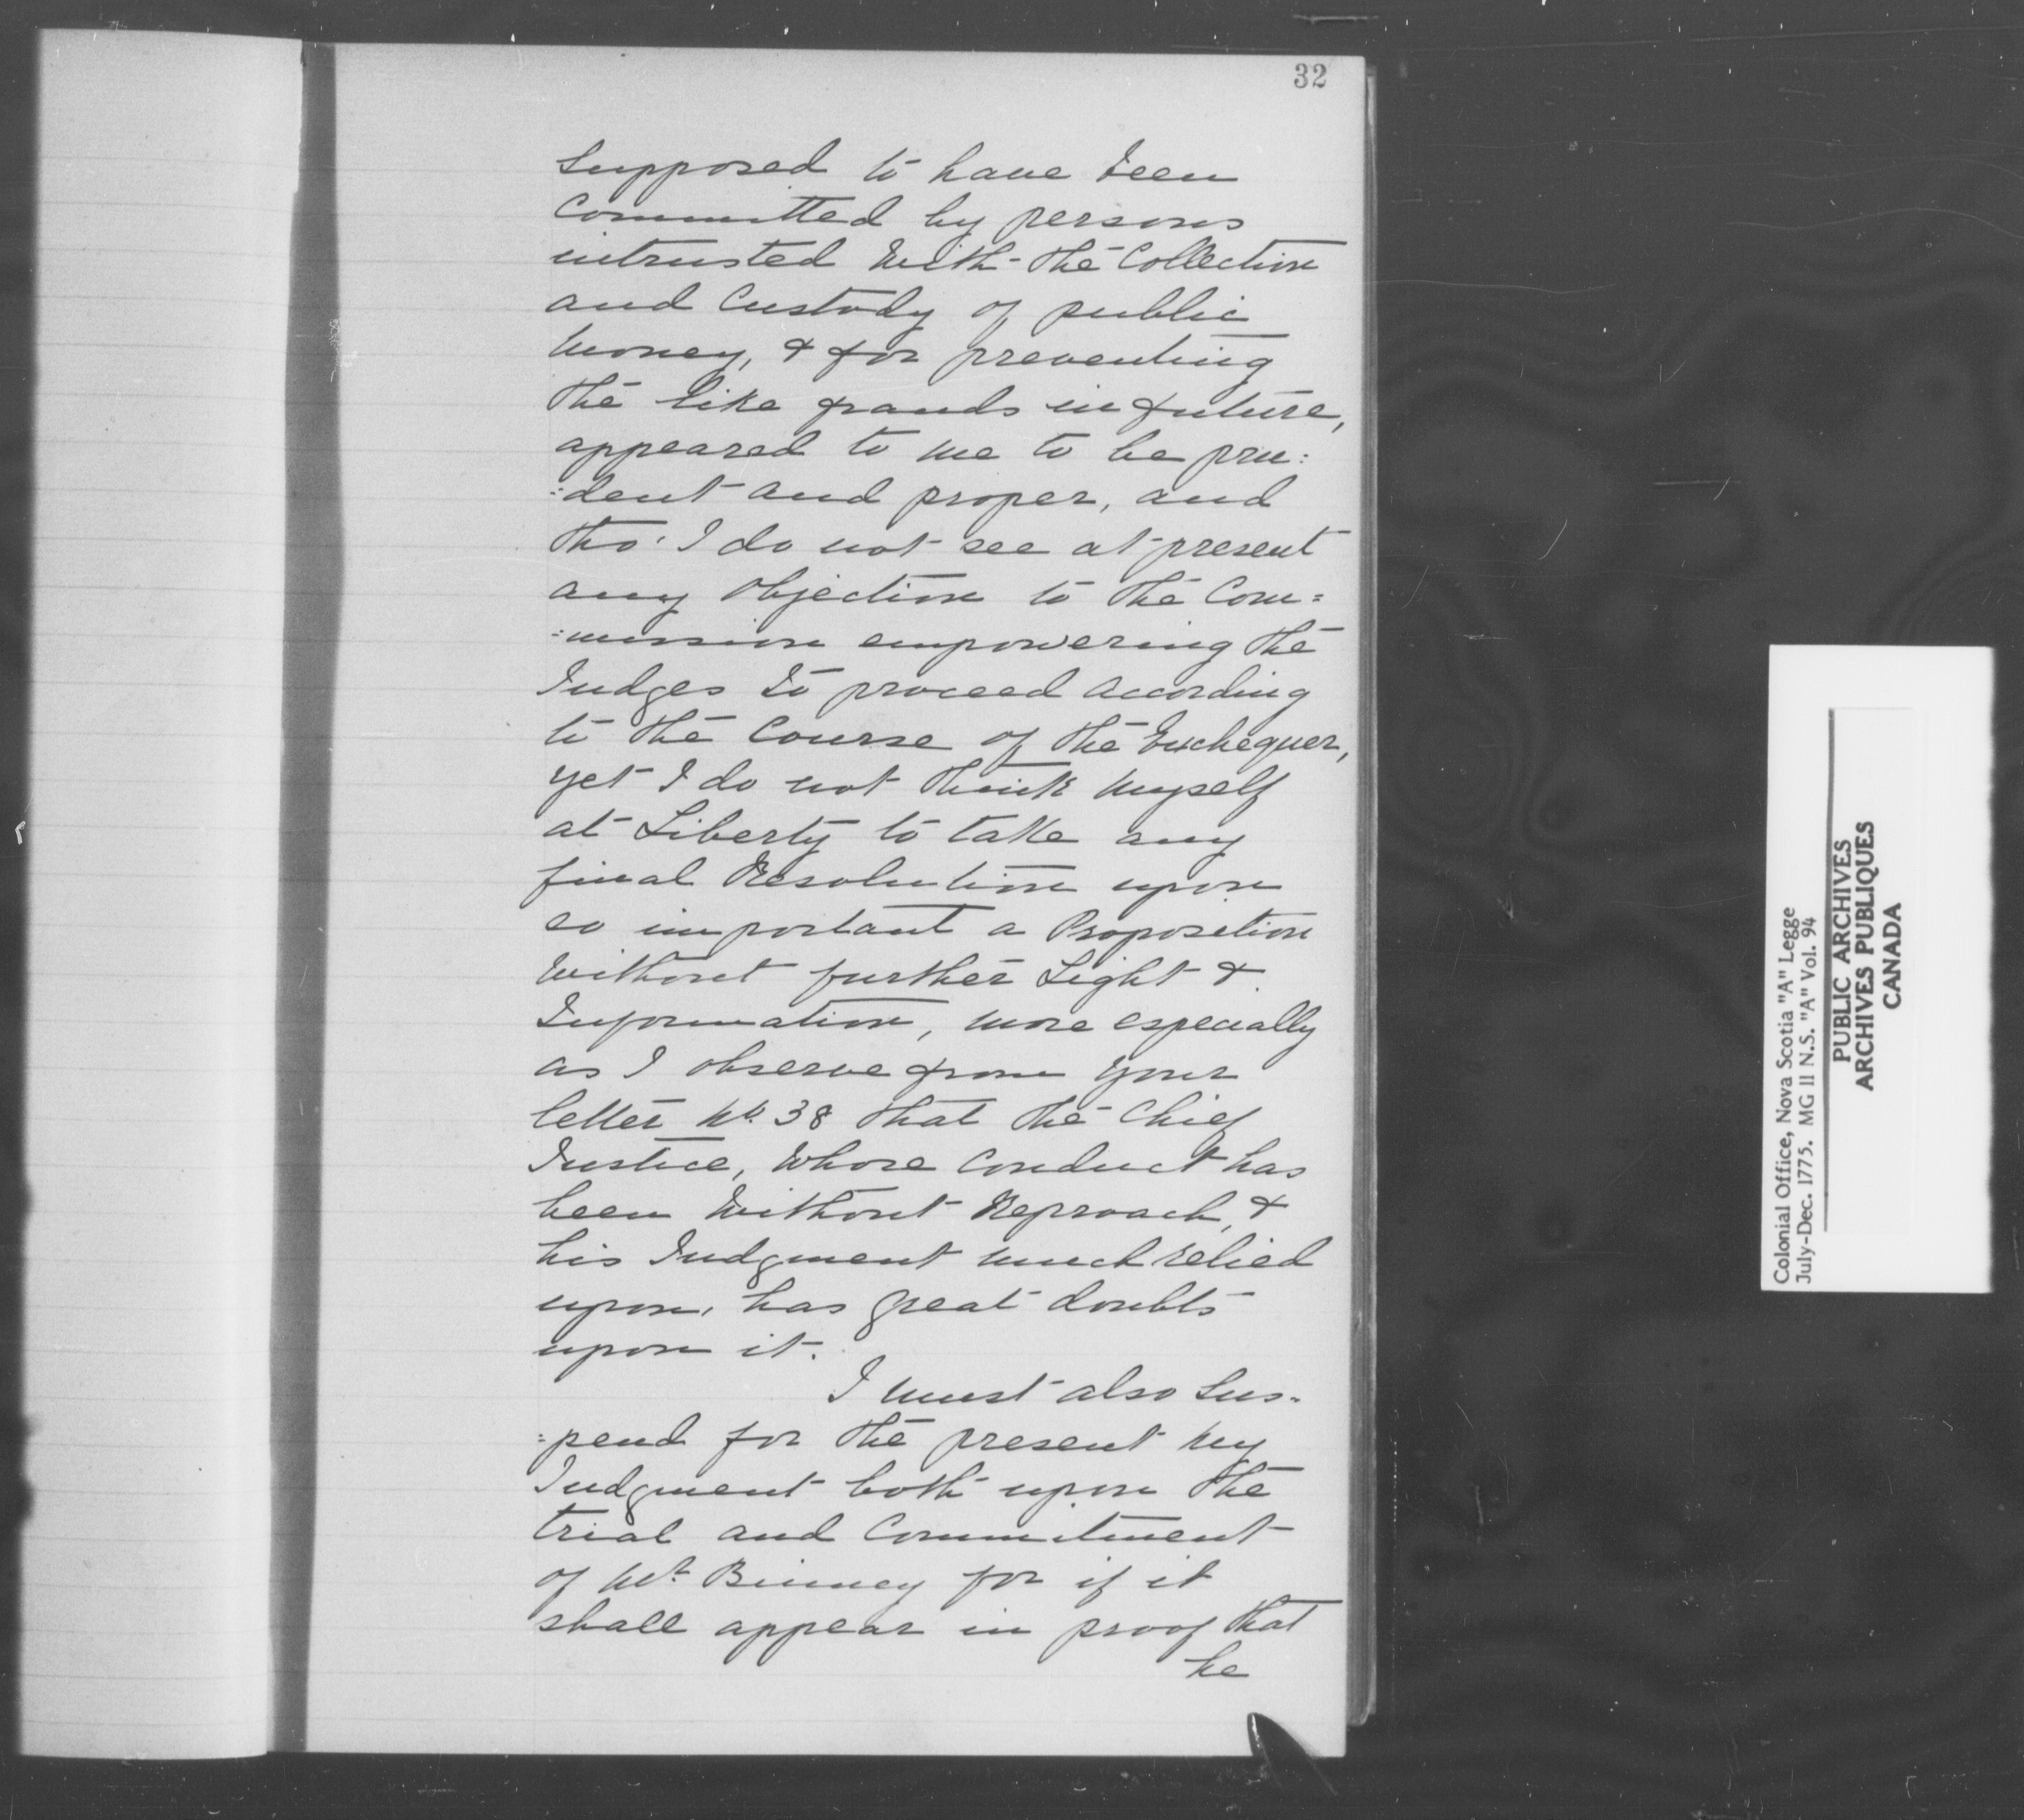 32
Supposed to have been
Committed by persons
intrusted with the Collection
and Custody of public
Money, & for preventing
the like frauds in future,
appeared to me to be pru:
:dent and proper, and
tho' I do not see at present
any Objection to the Com=
=mission empowering the
Judges to proceed according
to the Course of the Exchequer,
yet I do not think myself
at Liberty to take any
final Resolution upon
so important a Proposition
without further Light &
Information, more especially
as I observe from your
letter No. 38 that the Chief
Justice, whose Conduct has
been without Reproach, &
his Judgment much relied
upon, has great doubts
upon it.
I must also Sus=
=pend for the present my
Judgment both upon the
trial and Commitment
of Mr. Binney for if it
shall appear in proof that
he
Colonial Office, Nova Scotia "A" Legge
July-Dec. 1775. MG II N.S. "A" Vol. 94
PUBLIC ARCHIVES
ARCHIVES PUBLIQUES
CANADA